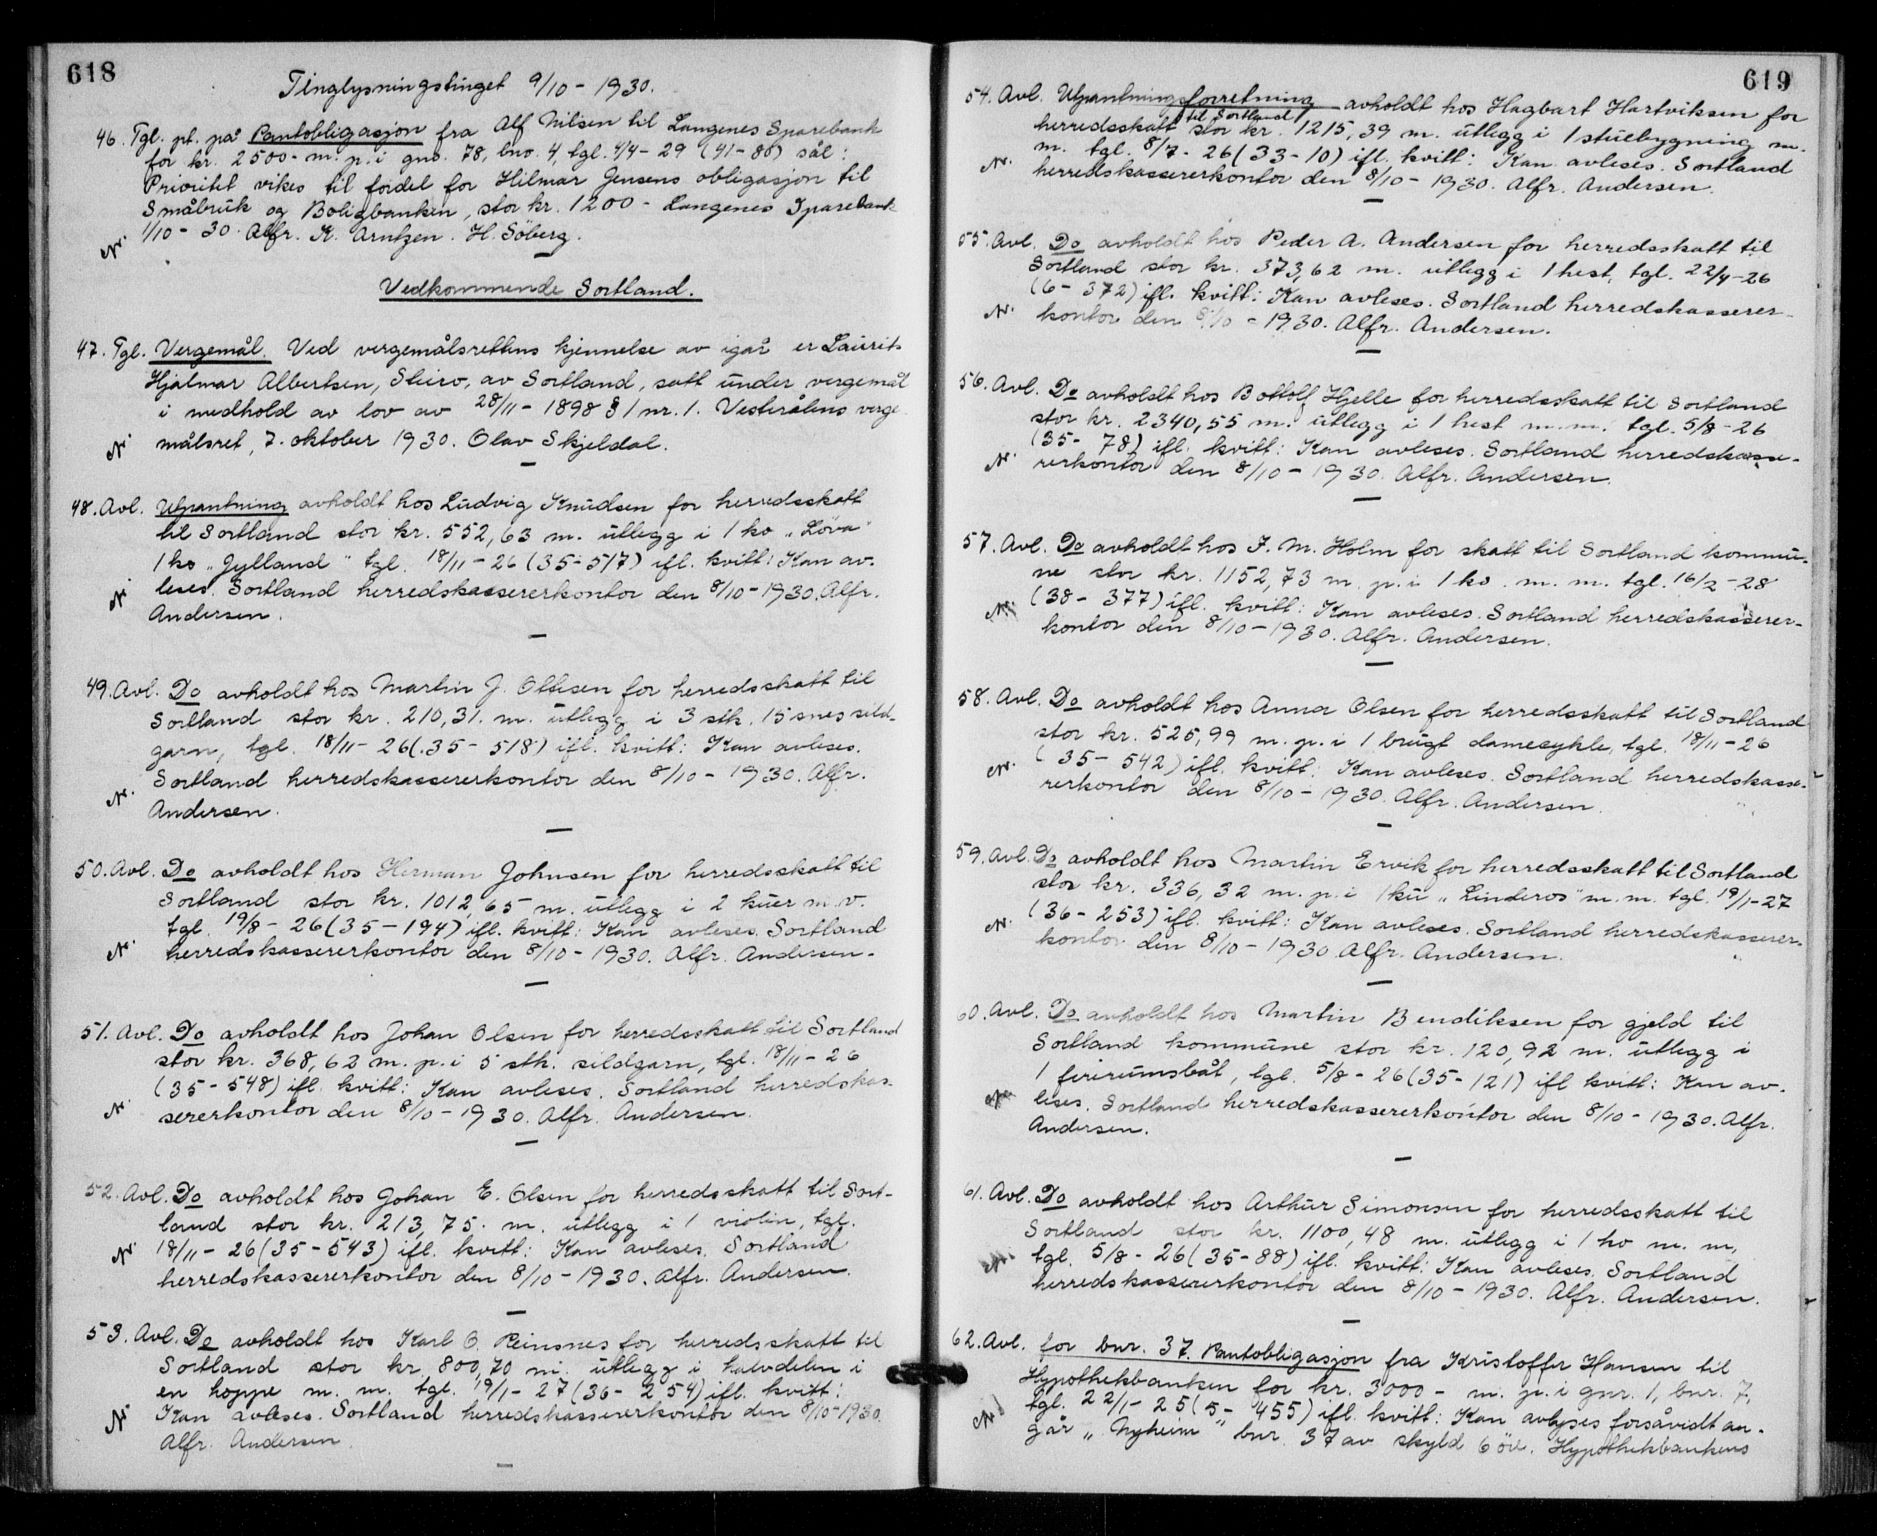 618
Tinglysningstinget 9/10 - 1930.
46. Tgl. pt. på Pantobligasjon fra Alf Nilsen til Langenes Sparebank
for kr. 2500.- m. p. i gno. 78, bno. 4, tgl. 4/4 - 29 (41 - 80) sål:
Prioritet vikes til fordel for Hilmar Jensens obligasjon til
Småbruk og Boligbanken, stor kr. 1200 - Langenes Sparebank
1/10 - 30. Alfr. K. Arntzen. H. Söberg.
N.
Vedkommende Sortland.
47. Tgl. Vergemål. Ved vergemålsrettens kjennelse av igår er Laurits
Hjalmar Albertsen, Steiro, av Sortland, satt under vergemål
i medhold av lov av 28/11 - 1898 § 1 nr. 1. Vesterålens verge
N. målsret, 7. oktober 1930. Olav Skjeldal.
48. Avl. Utpantning avholdt hos Ludvig Knudsen for herredsskatt
til Sortland stor kr. 552,63 m. utlegg i 1 ko „Löva"
1 ko „Jylland" tgl. 18/11 - 26 (35 - 517) ifl. kvitt: Kan av-
N. leses. Sortland herredskassererkontor den 8/10 - 1930. Alfr.
Andersen.
49. Avl. Do avholdt hos Martin J. Ottesen for herredsskatt til
Sortland stor kr. 210,31. m. utlegg i 3 stk. 15 snes sild-
garn, tgl. 18/11 - 26 (35 - 518) ifl. kvitt: Kan avleses.
N. Sortland herredskassererkontor den 8/10 - 1930. Alfr.
Andersen.
50. Avl. Do avholdt hos Herman Johnsen for herredsskatt til
Sortland stor kr. 1012,65 m. utlegg i 2 kuer m. v.
tgl. 19/8 - 26 (35 - 194) ifl. kvitt: Kan avleses. Sortland
N. herredskassererkontor den 8/10 - 1930. Alfr. Andersen.
51. Avl. Do avholdt hos Johan Olsen for herredsskatt til Sortland
stor kr. 368,62 m. p. i 5 stk. sildgarn, tgl. 18/11 - 26
(35 - 548) ifl. kvitt: Kan avleses. Sortland herredskas-
N. sererkontor den 8/10 - 1930. Alfr. Andersen.
52. Avl. Do avholdt hos Johan E. Olsen for herredsskatt til Sort-
land stor kr. 213,75. m. utlegg i 1 violin, tgl.
N. 18/11 - 26 (35 - 543) ifl. kvitt: Kan avleses. Sortland
herredskassererkontor den 8/10 - 1930. Alfr. Andersen.
53. Avl. Do avholdt hos Karl O. Reinsnes for herredsskatt til
Sortland stor kr. 800,70 m. utlegg i halvdelen i
en hoppe m. m. tgl. 19/1 - 27 (36 - 254) ifl. kvitt:
N. Kan avleses. Sortland herredskassererkontor den 8/10 - 1930.
Alfr. Andersen.
619
54. Avl. Utpantningsforretning avholdt hos Hagbart Hartviksen for
herredsskatt til Sortland stor kr. 1215,39 m. utlegg i 1 stuebygning m.
m. tgl. 8/7 - 26 (33 - 10) ifl. kvitt: Kan avleses. Sortland
N. herredskassererkontor den 8/10 - 1930. Alfr. Andersen.
55. Avl. Do avholdt hos Peder A. Andersen for herredsskatt til
Sortland stor kr. 373,62 m. utlegg i 1 hest, tgl. 22/4 - 26
(6 - 372) ifl. kvitt: Kan avleses. Sortland herredskasserer-
N. kontor den 8/10 - 1930. Alfr. Andersen.
56. Avl. Do avholdt hos Bottolf Hjelle for herredsskatt til Sortland
stor kr. 2340,55 m. utlegg i 1 hest m. m. tgl. 5/8 - 26
(35 - 78) ifl. kvitt: Kan avleses. Sortland herredskasse-
N. rerkontor den 8/10 - 1930. Alfr. Andersen.
57. Avl. Do avholdt hos J. M. Holm for skatt til Sortland kommu-
ne stor kr. 1152,73 m. p. i 1 ko m. m. tgl. 16/2 - 28
(38 - 377) ifl. kvitt: Kan avleses. Sortland herredskasserer-
N. kontor den 8/10 - 1930. Alfr. Andersen.
58. Avl. Do avholdt hos Anna Olsen for herredsskatt til Sortland
stor kr. 525,99 m. p. i 1 brugt damesykle, tgl. 18/11 - 26
N. (35 - 542) ifl. kvitt: Kan avleses. Sortland herredskasse-
rerkontor den 8/10 - 1930. Alfr. Andersen.
59. Avl. Do avholdt hos Martin Ervik for herredsskatt til Sortland
stor kr. 336,32 m. p. i 1 ku „Linderos" m. m. tgl. 19/1 - 27
N. (36 - 253) ifl. kvitt: Kan avleses. Sortland herredskasserer-
kontor den 8/10 - 1930. Alfr. Andersen.
60. Avl. Do avholdt hos Martin Bendiksen for gjeld til
Sortland kommune stor kr. 120,92 m. utlegg i
1 firirumsbåt, tgl. 5/8 - 26 (35 - 121) ifl kvitt: Kan av-
N. leses. Sortland herredskassererkontor den 8/10 - 1930. Alfr.
Andersen.
61. Avl. Do avholdt hos Arthur Simonsen for herredsskatt til
Sortland stor kr. 1100,48 m. utlegg i 1 ko m. m,
N. tgl. 5/8 - 26 (35 - 88) ifl. kvitt: Kan avleses. Sortland
herredskassererkontor den 8/10 - 1930. Alfr. Andersen.
62. Avl. for bnr. 37. Pantobligasjon fra Kristoffer Hansen til
Hypothekbanken for kr. 3000 - m. p. i gnr. 1, bnr. 7,
N. tgl. 22/1 - 25 (5 - 455) ifl. kvitt: Kan avlyses forsåvidt an-
går „Nyheim" bnr. 37 av skyld 6 öre. Hypothekbankens